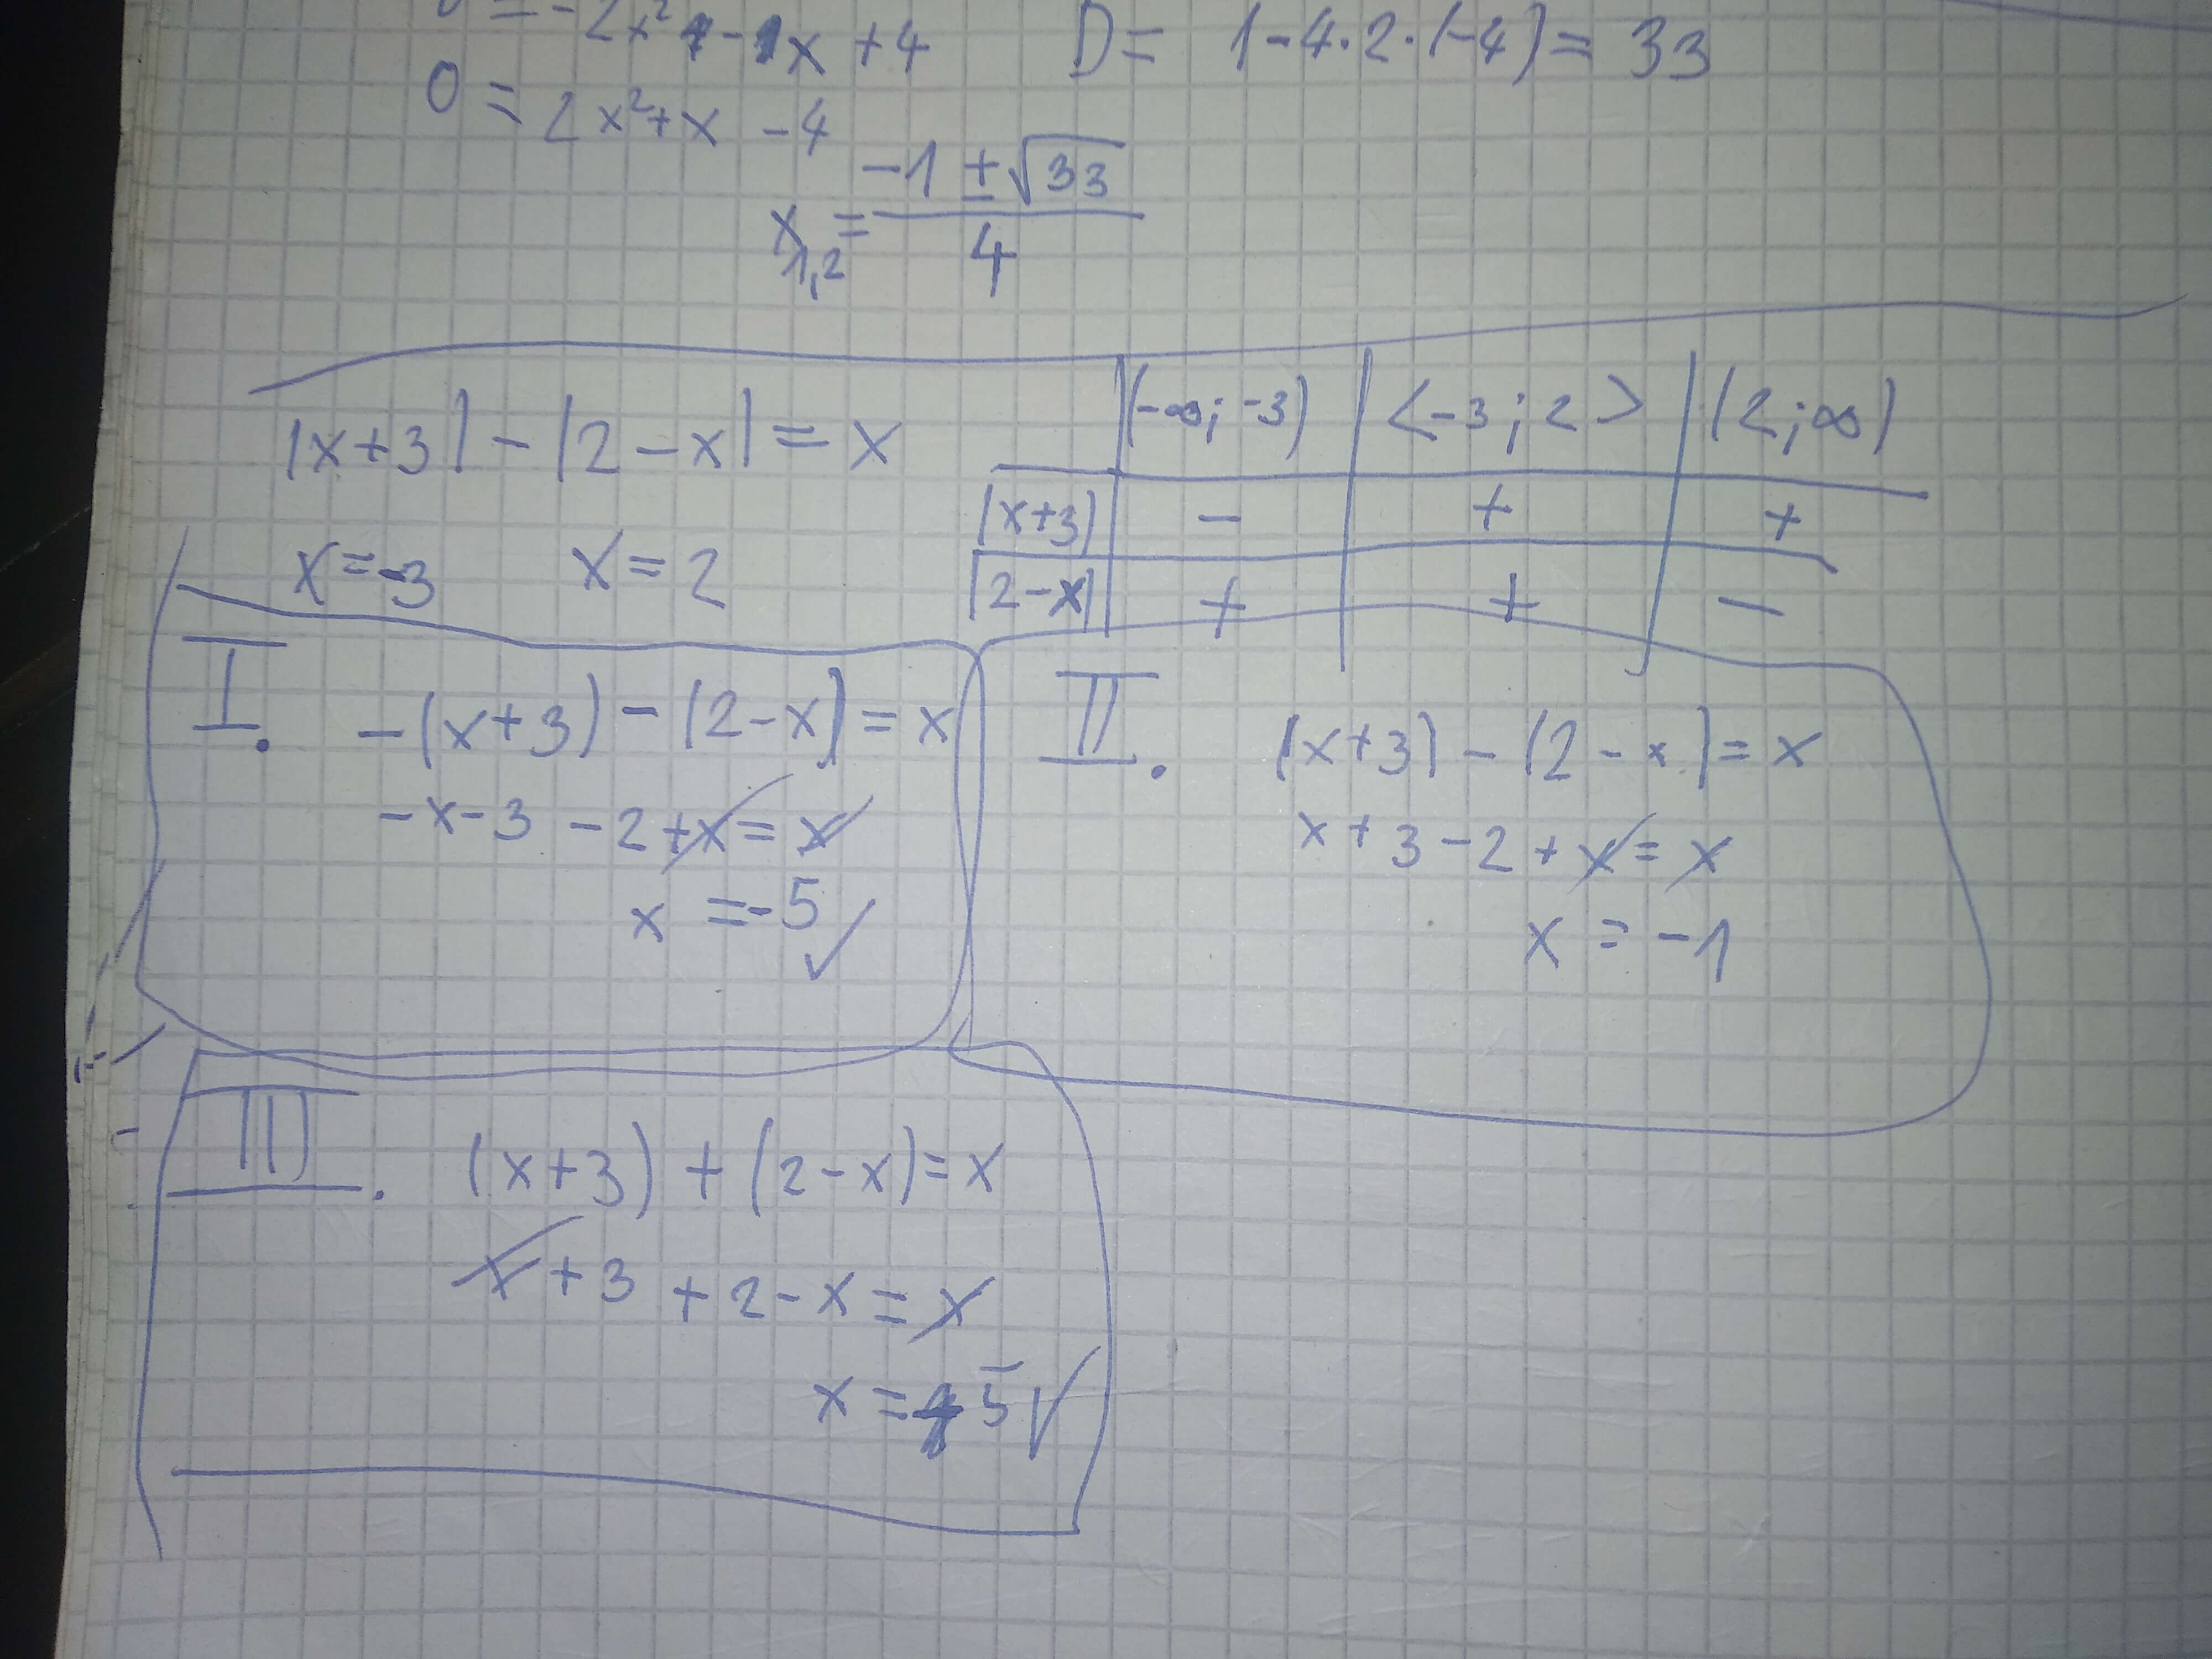 0 = -2x² - 1x + 4
D = 1 - 4·2·(-4) = 33
0 = 2x² + x - 4
x₁,₂ = (-1 ± √33)/4
|x+3| - |2-x| = x
(-∞; -3) | <-3; 2> | (2; ∞)
|x+3| | - | + | +
|2-x| | + | + | -
x = -3 x = 2
I. -(x+3) - (2-x) = x
-x-3 -2+x = x
x = -5 ✓
II. (x+3) - (2-x) = x
x+3-2+x = x
x = -1
III. (x+3) + (2-x) = x
x+3+2-x = x
x = 5 ✓